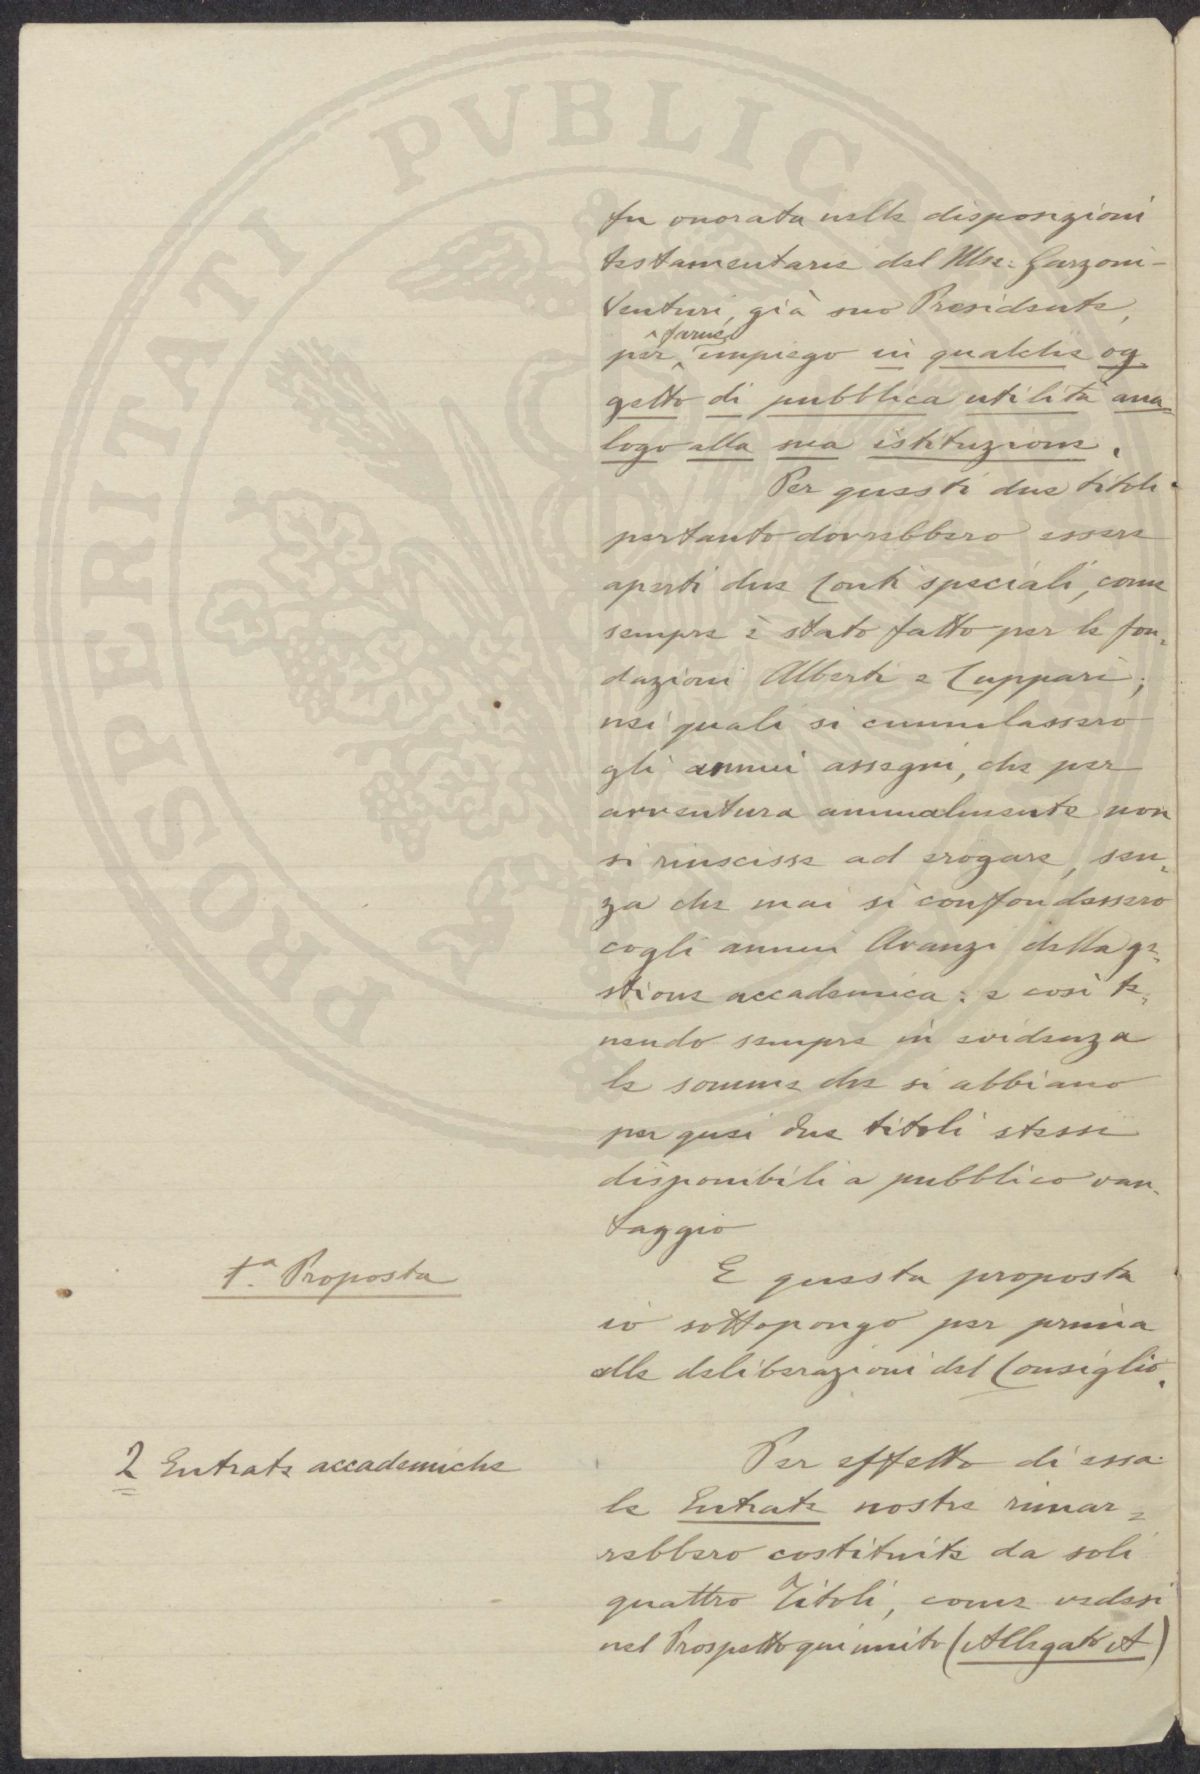 fu onorata nelle disposizioni
testamentarie del Mse: Garzoni-
Venturi, già suo Presidente,
per farne impiego in qualche og-
getto di pubblica utilità ana=
logo alla sua istituzione.
Per questi due titoli
pertanto dovrebbero essere
aperti due Conti speciali, come
sempre è stato fatto per le fon=
dazioni Alberti e Cuppari;
nei quali si cumulassero
gli annui assegni, che per
avventura annualmente non
si riuscisse ad erogare, sen=
za che mai si confondessero
cogli annui Avanzi della ge=
stione accademica: e così te=
nendo sempre in evidenza
le somme che si abbiano
per quei due titoli stessi
disponibili a pubblico van-
taggio
1.a Proposta
E questa proposta
io sottopongo per prima
alle deliberazioni del Consiglio.
2 Entrate accademiche
Per effetto di essa
le Entrate nostre rimar=
rebbero costituite da soli
quattro Titoli, come vedesi
nel Prospetto qui unito (Allegato A)
PROSPERITATI PVBLICAE